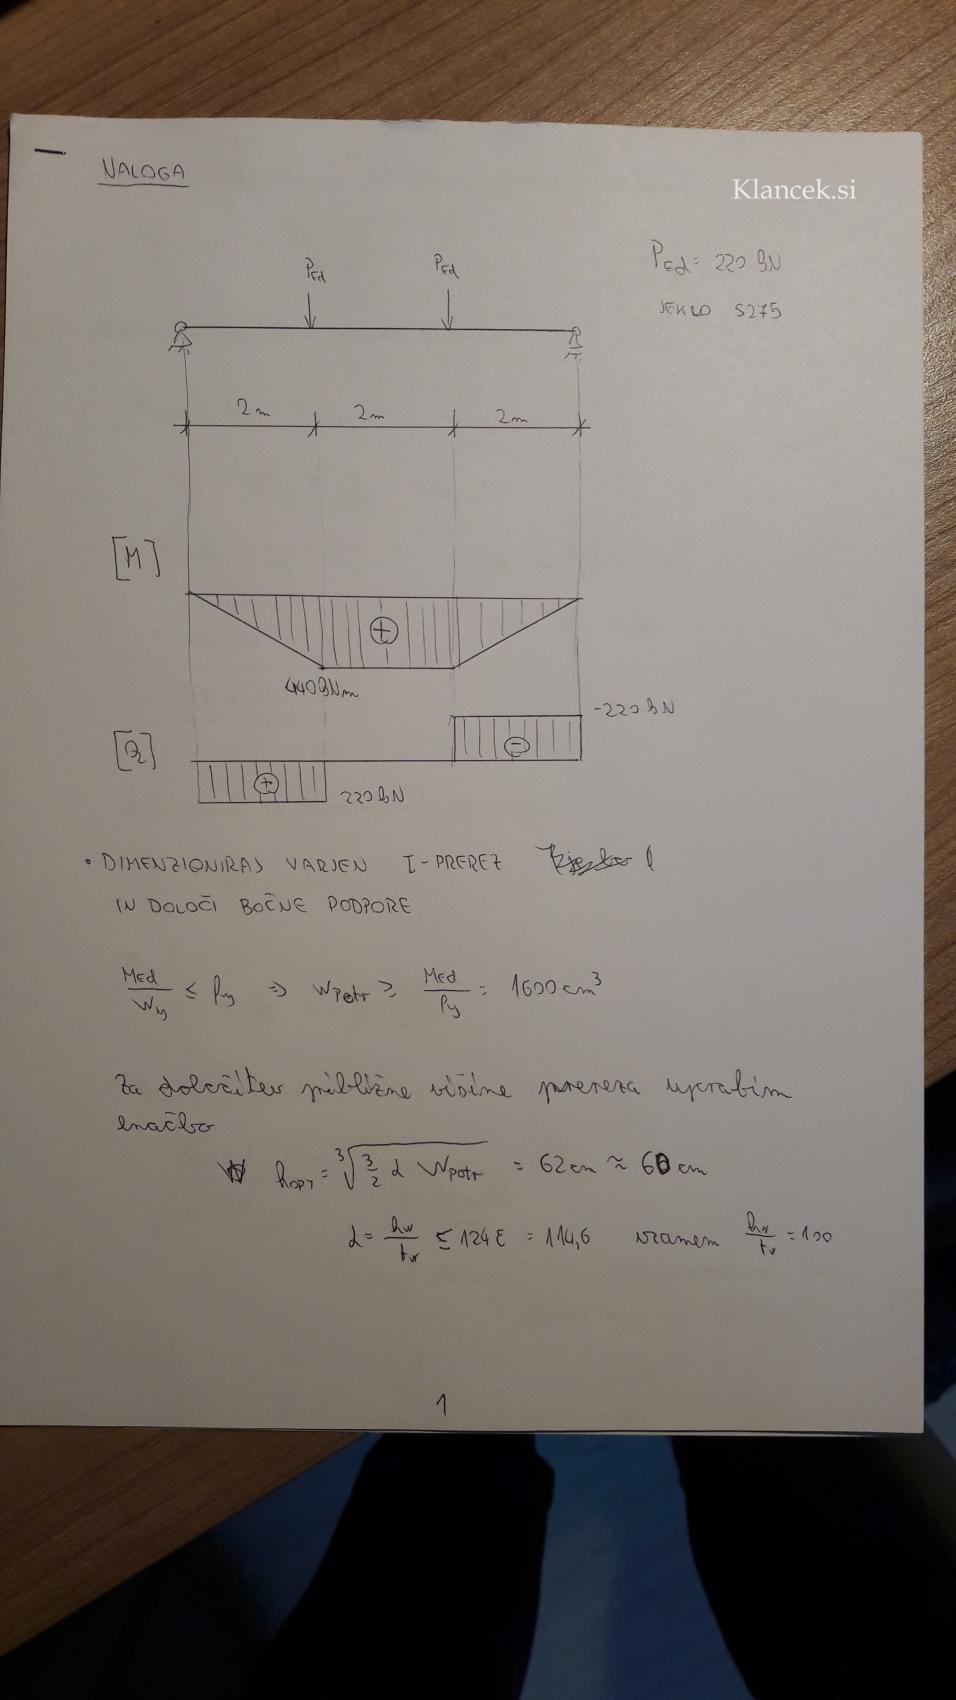 NALOGA
Klancek.si
PEd = 220 kN
JEKLO S275
PEd PEd
2m 2m 2m
[M]
440 kNm
-220 kN
[Q]
220 kN
• DIMENZIONIRAJ VARJEN I-PREREZ
IN DOLOČI BOČNE PODPORE
MEd/Wy ≤ fy ⇒ Wpotr ≥ MEd/fy = 1600 cm³
Za določitev približne višine prereza uporabim
enačbo
hopt = ∛(3/2 α Wpotr) = 62 cm ≈ 60 cm
α = hw/tw ≤ 124 ε = 114,6 vzamem hw/tw = 100
1